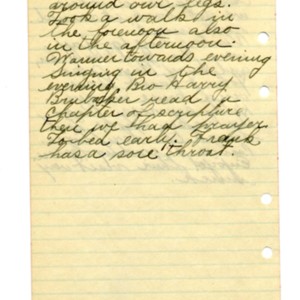 around our legs.
Took a walk in
the forenoon also
in the afternoon.
Warmer towards evening
Singing in the
evening, Bro Harry
Brubaker read a
chapter of scripture
then we had prayer
To bed early. Frank
has a sore throat.